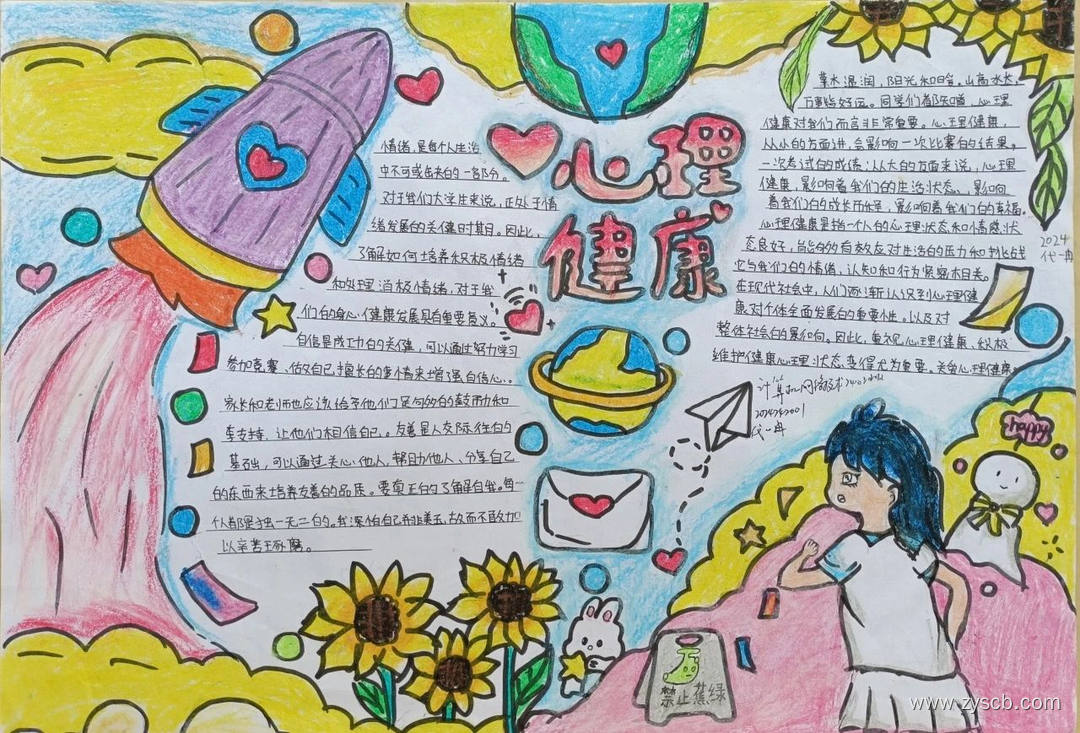 心理
健康
情绪,是每个人生活
中不可或缺的一部分。
对于我们大学生来说,正处于情
绪发展的关健时期。因此,
了解如何培养积极情绪
和处理消极情绪,对于我
们的身心健康发展具有重要意义。
自信是成功的关健,可以通过努力学习
参加竞赛,做自己擅长的事情来增强自信心。
家长和老师也应该给予他们足够的的鼓励和
支持,让他们相信自己。友善是人交际往的
基础,可以通过关心他人,帮助他人,分享自己
的东西来培养友善的品质。要真正的了解自我。每一
个都是独一无二的。我深怕自己并非美玉,故而不敢加
以辛苦琢磨。
草木温润,阳光和日合。山高水长,
万事皆好运。同学们都知道,心理
健康对我们而言非常重要。心理健康,
从小的方面讲,会影响一次比赛的结果。
一次考试的成绩:从大的方面来说,心理
健康,影响着我们的生活状态、影响
着我们的成长,影响着我们的幸福。
心理健康是指一个人的心理状态和情感状
态良好,能够有效应对生活的压力和挑战
它与我们的情绪,认知和行为紧密相关。
在现代社会中,人们逐渐认识到心理健
康对个体全面发展的重要性。以及对
整体社会的影响。因此,重视心理健康、积极
维护健康心理状态变得尤为重要。关爱心理健康。
2024
代一冉
计算机网络技术
代一冉
happy
禁止蕉绿
www.zyscb.com